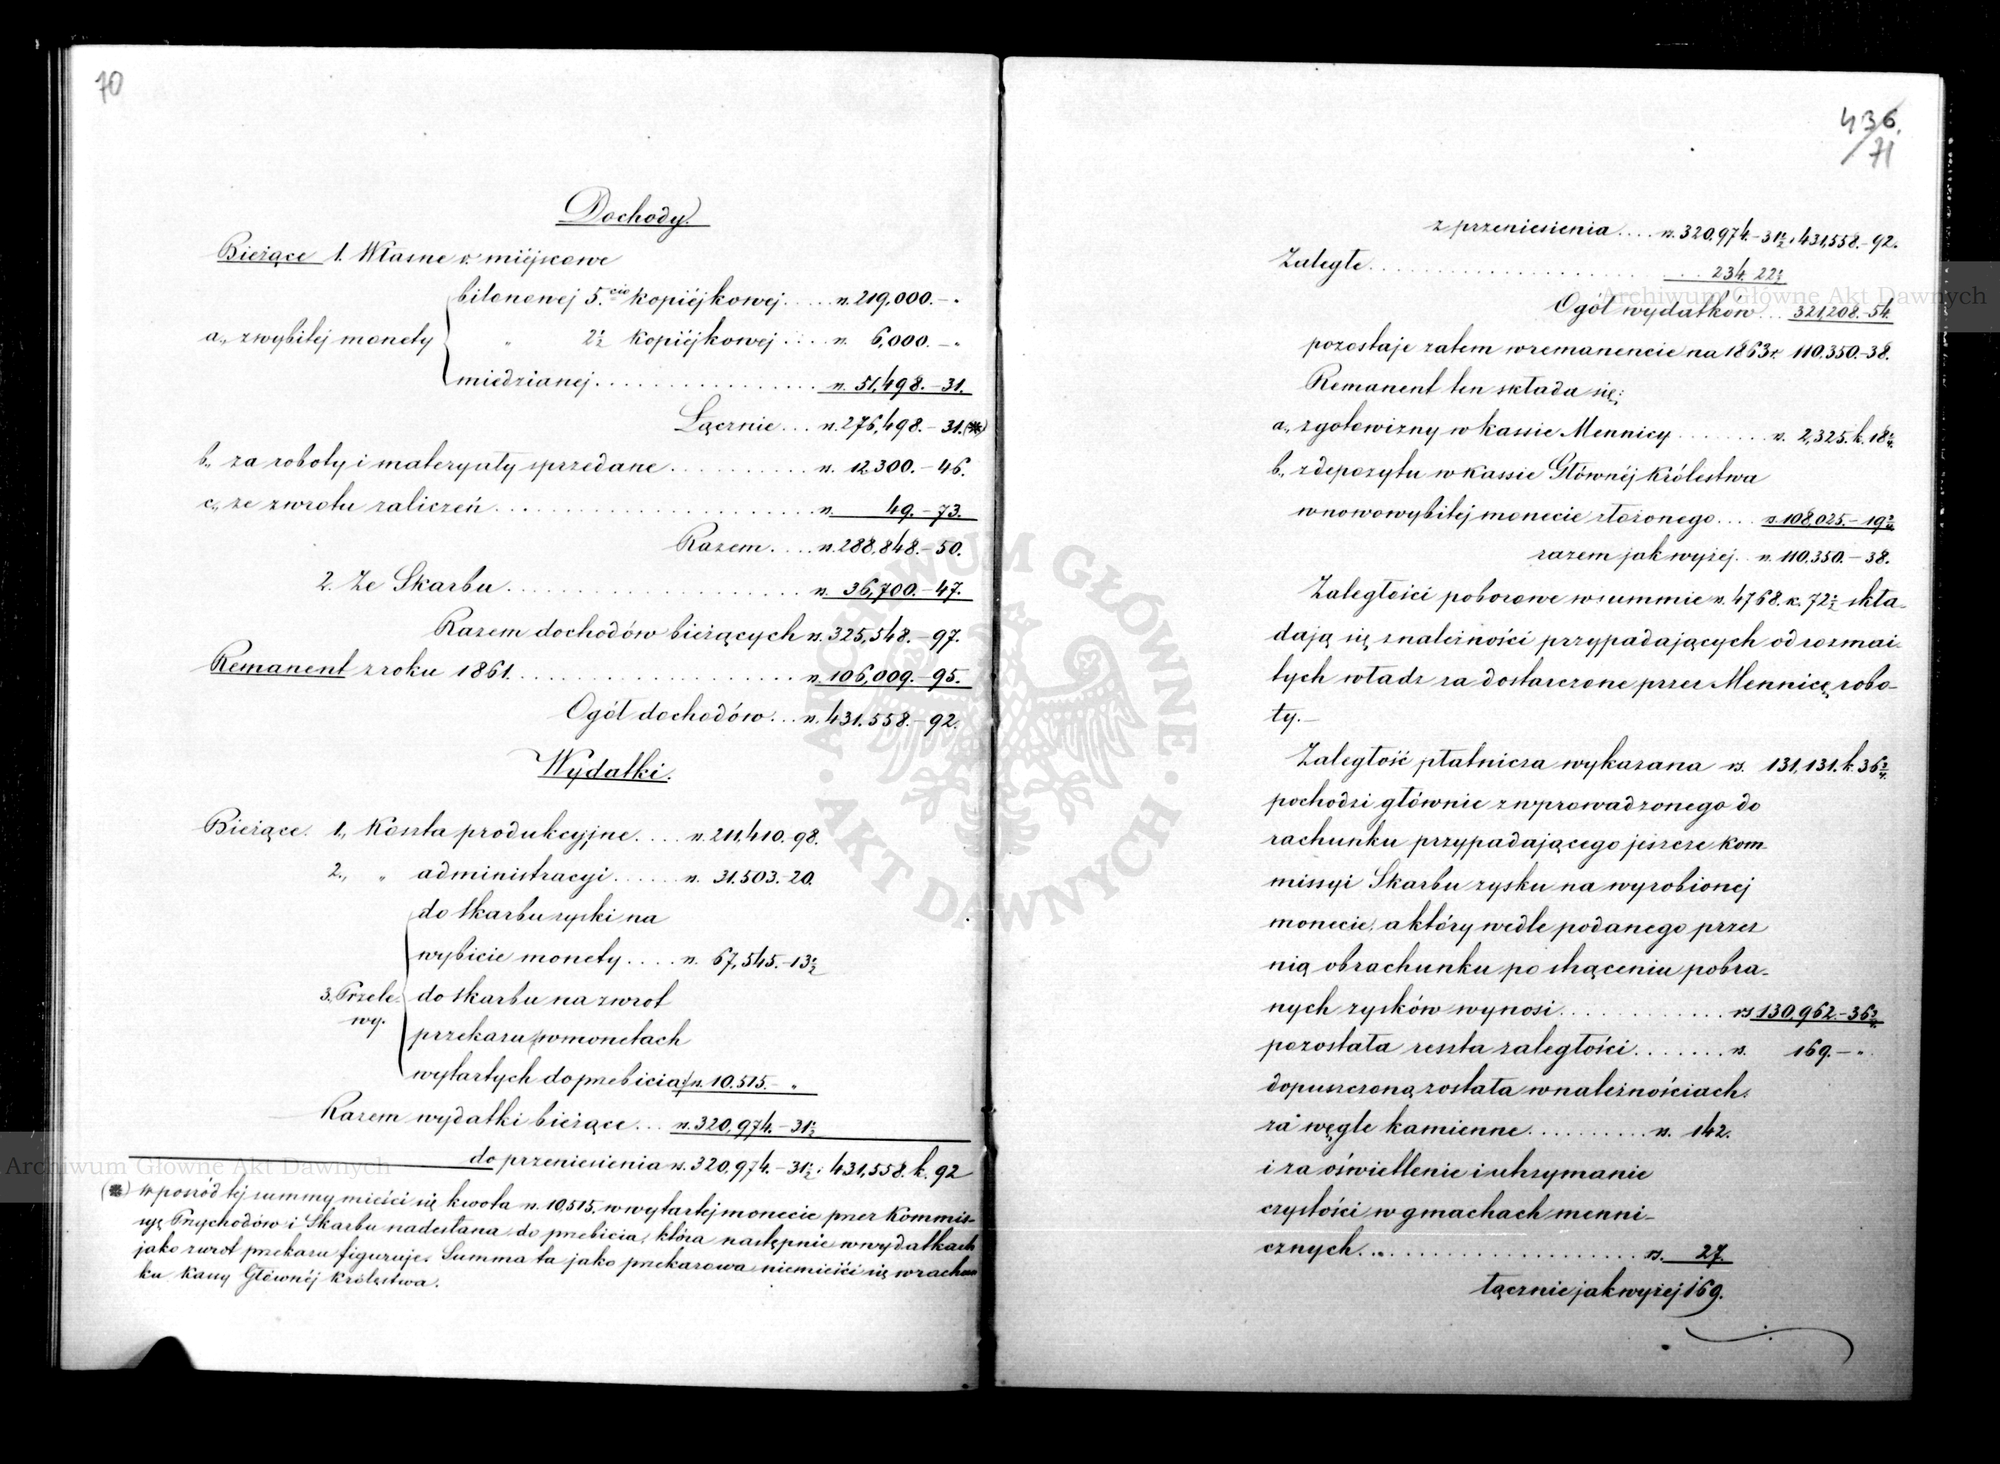 70
Dochody.
Bieżące 1. Własne v. miéjscowe
bilonowej 5.cio kopiéjkowej..... rs. 219,000.— "
a., z wybitej monety " 2½ kopiéjkowej..... rs. 6,000.— "
miedzianej................. rs. 51,498.—31.
Łącznie... rs. 276,498.—31.(*)
b., za roboty i materyały sprzedane........... rs. 12,300.—46.
c., ze zwrotu zaliczeń..................... rs. 49.—73.
Razem.... rs. 288,848.—50.
2. Ze Skarbu..................... rs. 36,700.—47.
Razem dochodów bieżących rs. 325,548.—97.
Remanent z roku 1861..................... rs. 106,009.—95.
Ogół dochodów... rs. 431,558.—92.
Wydatki.
Bieżące. 1., Koszta produkcyjne.... rs. 211,410.98.
2., " administracyi...... rs. 31,503.—20.
do skarbu zyski na
wybicie monety.... rs. 67,545.—13½
3. Przele- do skarbu na zwrot
wy. przekazu (w monetach
wytartych do przebicia) rs. 10,515.— "
Razem wydatki bieżące... rs. 320,974.—31½
do przeniesienia rs. 320,974.—31½; 431,558. k. 92
(*) W pośród tej summy mieści się kwota rs. 10,515. w wytartej monecie przez Kommis-
syę Przychodów i Skarbu nadesłana do przebicia, która następnie w wydatkach
jako zwrot przekazu figuruje. Summa ta jako przekazowa niemieści się w rachun
ku kassy Głównéj Królestwa.
436.
71
z przeniesienia.... rs. 320,974.—31½, 431,558.—92.
Zaległe........................... 234. 22½
Ogół wydatków... 321,208.—54.
pozostaje zatem w remanencie na 1863 r. 110,350.—38.
Remanent ten składa się:
a., z gotowizny w kassie Mennicy......... rs. 2,325. k. 18¼
b., z depozytu w kassie Głównéj Królestwa
w nowowybitej monecie złożonego.... rs. 108,025.—19¾
razem jak wyżej.. rs. 110,350.—38.
Zaległości poborowe w summie rs. 4768. k. 72½ skła-
dają się z należności przypadających od rozmai-
tych władz za dostarczone przez Mennicę robo-
ty.—
Zaległość płatnicza wykazana rs. 131,131. k. 36¾
pochodzi głównie z wprowadzonego do
rachunku przypadającego jeszcze Kom-
missyi Skarbu zysku na wyrobionej
monecie, a który wedle podanego przez
nią obrachunku po strąceniu pobra-
nych zysków wynosi............ rs. 130,962.—36¾
pozostała reszta zaległości....... rs. 169.— "
dopuszczoną została w należnościach:
za węgle kamienne.......... rs. 142.
i za oświetlenie i utrzymanie
czystości w gmachach menni-
cznych..................... rs. 27.
łącznie jak wyżej 169.
Archiwum Główne Akt Dawnych
Archiwum Główne Akt Dawnych
ARCHIWUM GŁÓWNE · AKT DAWNYCH ·